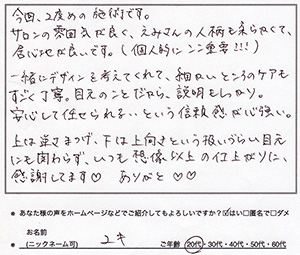 今回、2度めの施術です。
サロンの雰囲気が良く、えみさんの人柄も柔らかくて、
居心地が良いです。(個人的にここ重要!!!)
一緒にデザインを考えてくれて、細かいところのケアも
すごく丁寧。目元のことだから、説明もしっかり。
安心して任せられるという信頼感が心強い。
上は逆さまつげ、下は上向きという扱いづらい目元
にも関わらず、いつも想像以上の仕上がりに、
感謝してます♡ ありがと♡♡
● あなた様の声をホームページなどでご紹介してもよろしいですか?☑はい□匿名で□ダメ
● お名前
(ニックネーム可) ユキ ご年齢 20代・30代・40代・50代・60代